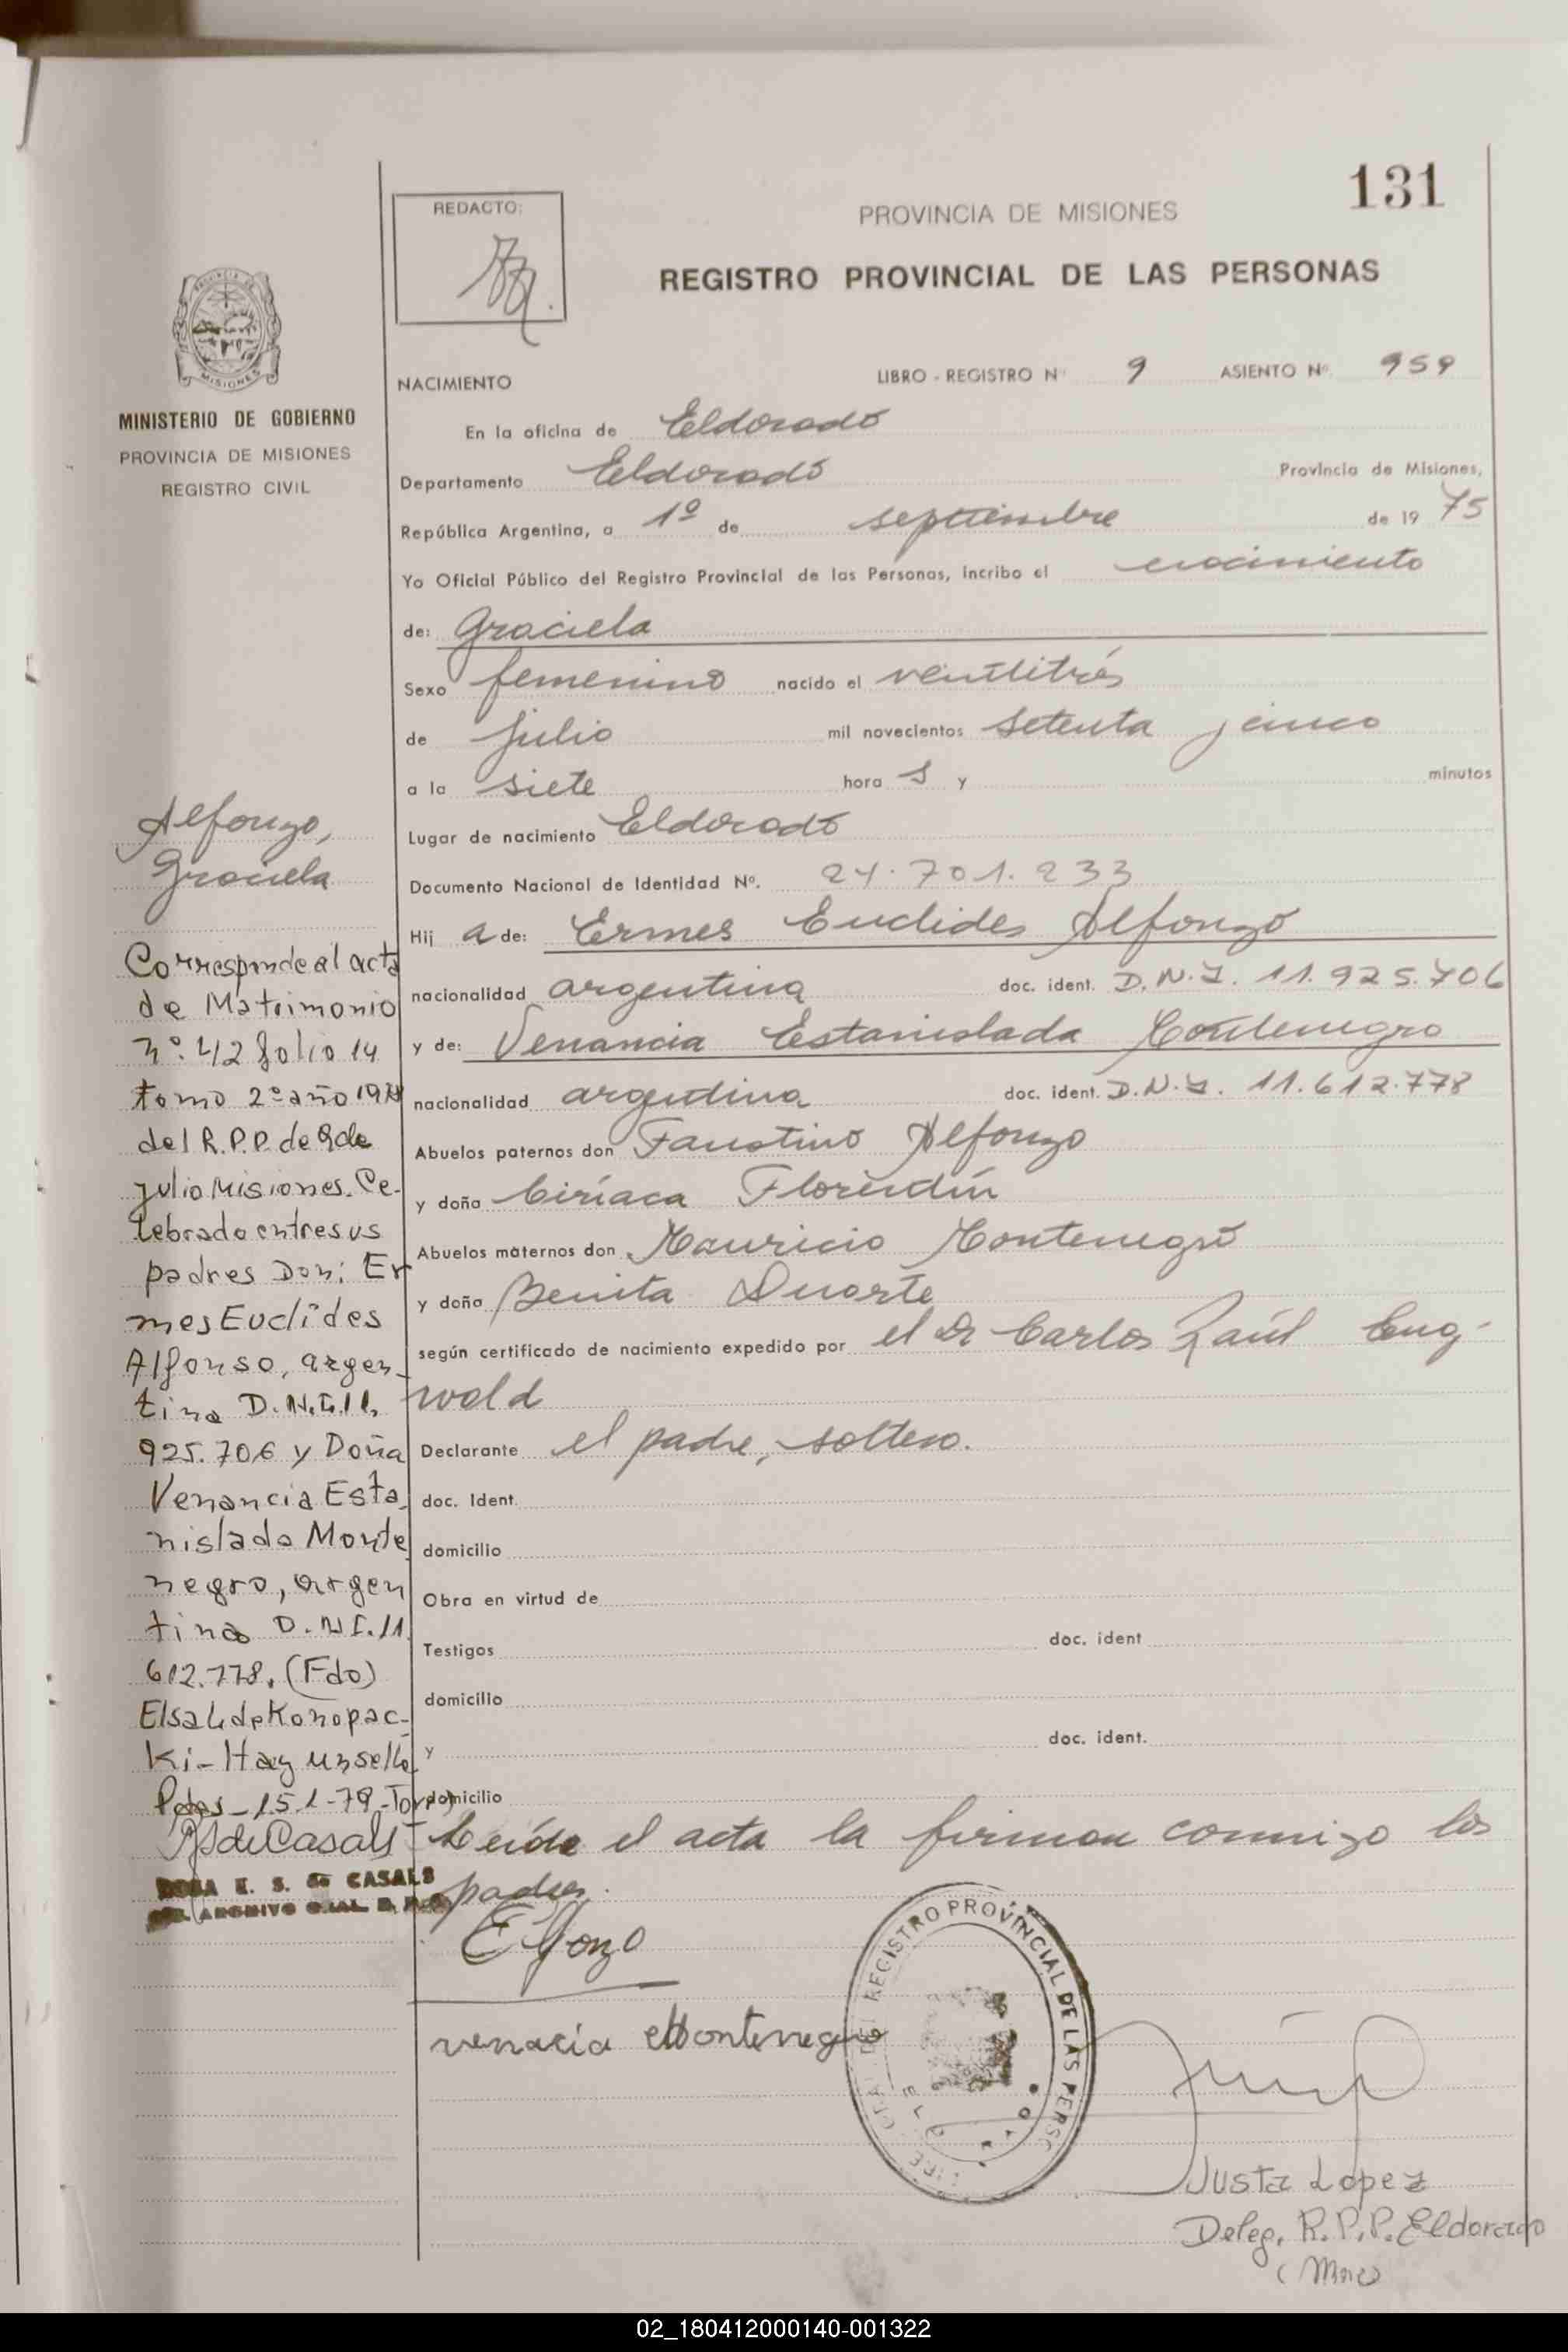 131
REDACTO:
PROVINCIA DE MISIONES
REGISTRO PROVINCIAL DE LAS PERSONAS
MISIONES
MINISTERIO DE GOBIERNO
PROVINCIA DE MISIONES
REGISTRO CIVIL
NACIMIENTO LIBRO - REGISTRO Nº 9 ASIENTO Nº 959
En la oficina de Eldorado
Departamento Eldorado Provincia de Misiones,
República Argentina, a 1º de septiembre de 1975
Yo Oficial Público del Registro Provincial de las Personas, incribo el nacimiento
de: Graciela
Sexo femenino nacido el ventitrés
de julio mil novecientos setenta y cinco
a la siete hora s y minutos
Lugar de nacimiento Eldorado
Documento Nacional de Identidad Nº. 24.701.233
Hij a de: Ermes Euclides Alfonzo
nacionalidad argentina doc. ident. D.N.I. 11.925.706
y de: Venancia Estanislada Montenegro
nacionalidad argentina doc. ident. D.N.I. 11.612.778
Abuelos paternos don Faustino Alfonzo
y doña Ciríaca Florentín
Abuelos maternos don Mauricio Montenegro
y doña Benita Duarte
según certificado de nacimiento expedido por el Dr Carlos Raúl
wald
Declarante el padre, soltero.
doc. Ident.
domicilio
Obra en virtud de
Testigos doc. ident
domicilio
y doc. ident.
domicilio
Leída el acta la firman conmigo los
padres.
Alfonzo,
Graciela
Corresponde al acta
de Matrimonio
nº. 42 folio 14
tomo 2º año 1978
del R.P.P. de 9 de
julio Misiones. Ce-
lebrado entre sus
padres Don: Er
mes Euclides
Alfonso, argen-
tino D.N.I. 11.
925.706 y Doña
Venancia Esta
nislada Monte
negro, argen
tina D.N.I. 11
612.778. (Fdo)
Elsa L de Konopac-
ki - Hay un sello
Pdas - 15-1-79 -
RS de Casals
ROSA E. S. de CASALS
ARCHIVO GRAL R.P.P.
venacia Montenegro
REGISTRO PROVINCIAL DE LAS PERSO
Justa Lopez
Deleg. R.P.P. Eldorado
(Mnes)
02_180412000140-001322